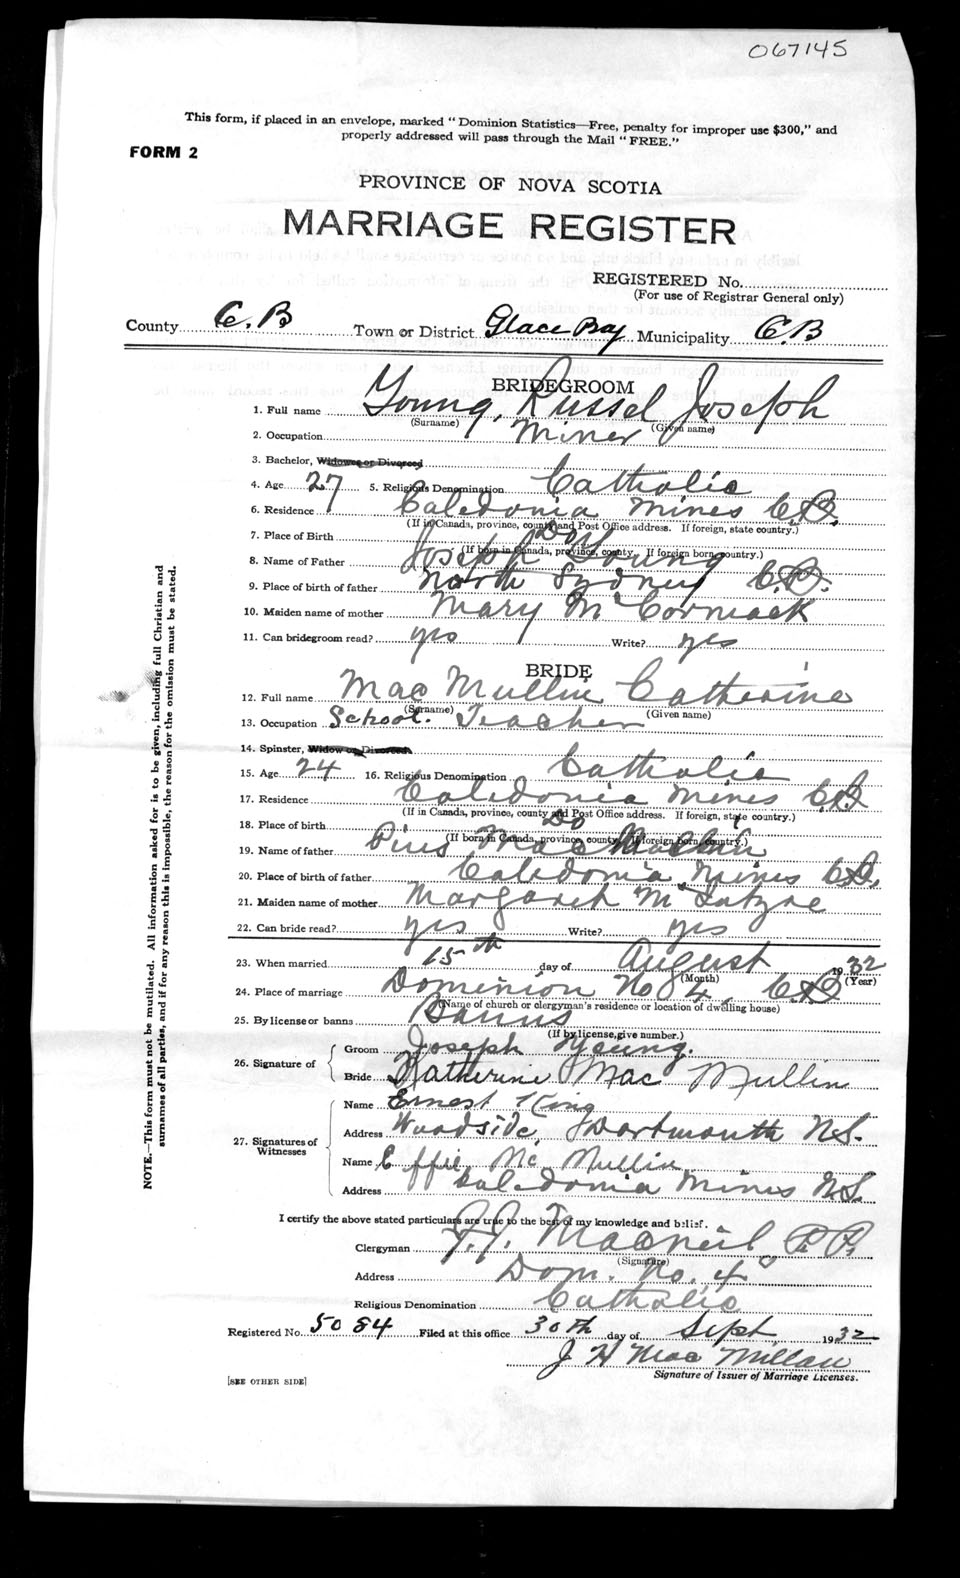 067145
This form, if placed in an envelope, marked "Dominion Statistics—Free, penalty for improper use $300," and
properly addressed will pass through the Mail "FREE."
FORM 2
PROVINCE OF NOVA SCOTIA
MARRIAGE REGISTER
REGISTERED No.
(For use of Registrar General only)
County C.B Town or District Glace Bay Municipality C.B
BRIDEGROOM
1. Full name Young, Russel Joseph
(Surname) (Given name)
2. Occupation Miner
3. Bachelor, Widower or Divorced
4. Age 27 5. Religious Denomination Catholic
6. Residence Caledonia Mines C.B.
(If in Canada, province, county and Post Office address. If foreign, state country.)
7. Place of Birth Do
(If born in Canada, province, county. If foreign born, country.)
8. Name of Father Joseph Young
9. Place of birth of father North Sydney C.B.
10. Maiden name of mother Mary McCormack
11. Can bridegroom read? yes Write? yes
BRIDE
12. Full name MacMullin Catherine
(Surname) (Given name)
13. Occupation School. Teacher
14. Spinster, Widow or Divorced
15. Age 24 16. Religious Denomination Catholic
17. Residence Caledonia Mines C.B
(If in Canada, province, county and Post Office address. If foreign, state country.)
18. Place of birth Do
(If born in Canada, province, county. If foreign born, country.)
19. Name of father Pius Mac Mullin
20. Place of birth of father Caledonia Mines C.B.
21. Maiden name of mother Margaret McIntyre
22. Can bride read? yes Write? yes
23. When married 15th day of August 1932
(Month) (Year)
24. Place of marriage Dominion No 4, C.B
(Name of church or clergyman's residence or location of dwelling house)
25. By license or banns Banns
(If by license, give number.)
26. Signature of
Groom Joseph Young.
Bride Katherine Mac Mullin
27. Signatures of Witnesses
Name Ernest King
Address Woodside, Dartmouth N.S.
Name Effie Mc Mullin
Address Caledonia Mines N.S.
I certify the above stated particulars are true to the best of my knowledge and belief.
Clergyman J.J. Macneil P.P.
(Signature)
Address Dom. No. 4
Religious Denomination Catholic
Registered No. 5084 Filed at this office 30th day of Sept 1932
J H MacMillan
Signature of Issuer of Marriage Licenses.
[SEE OTHER SIDE]
NOTE.—This form must not be mutilated. All information asked for is to be given, including full Christian and
surnames of all parties, and if for any reason this is impossible, the reason for the omission must be stated.